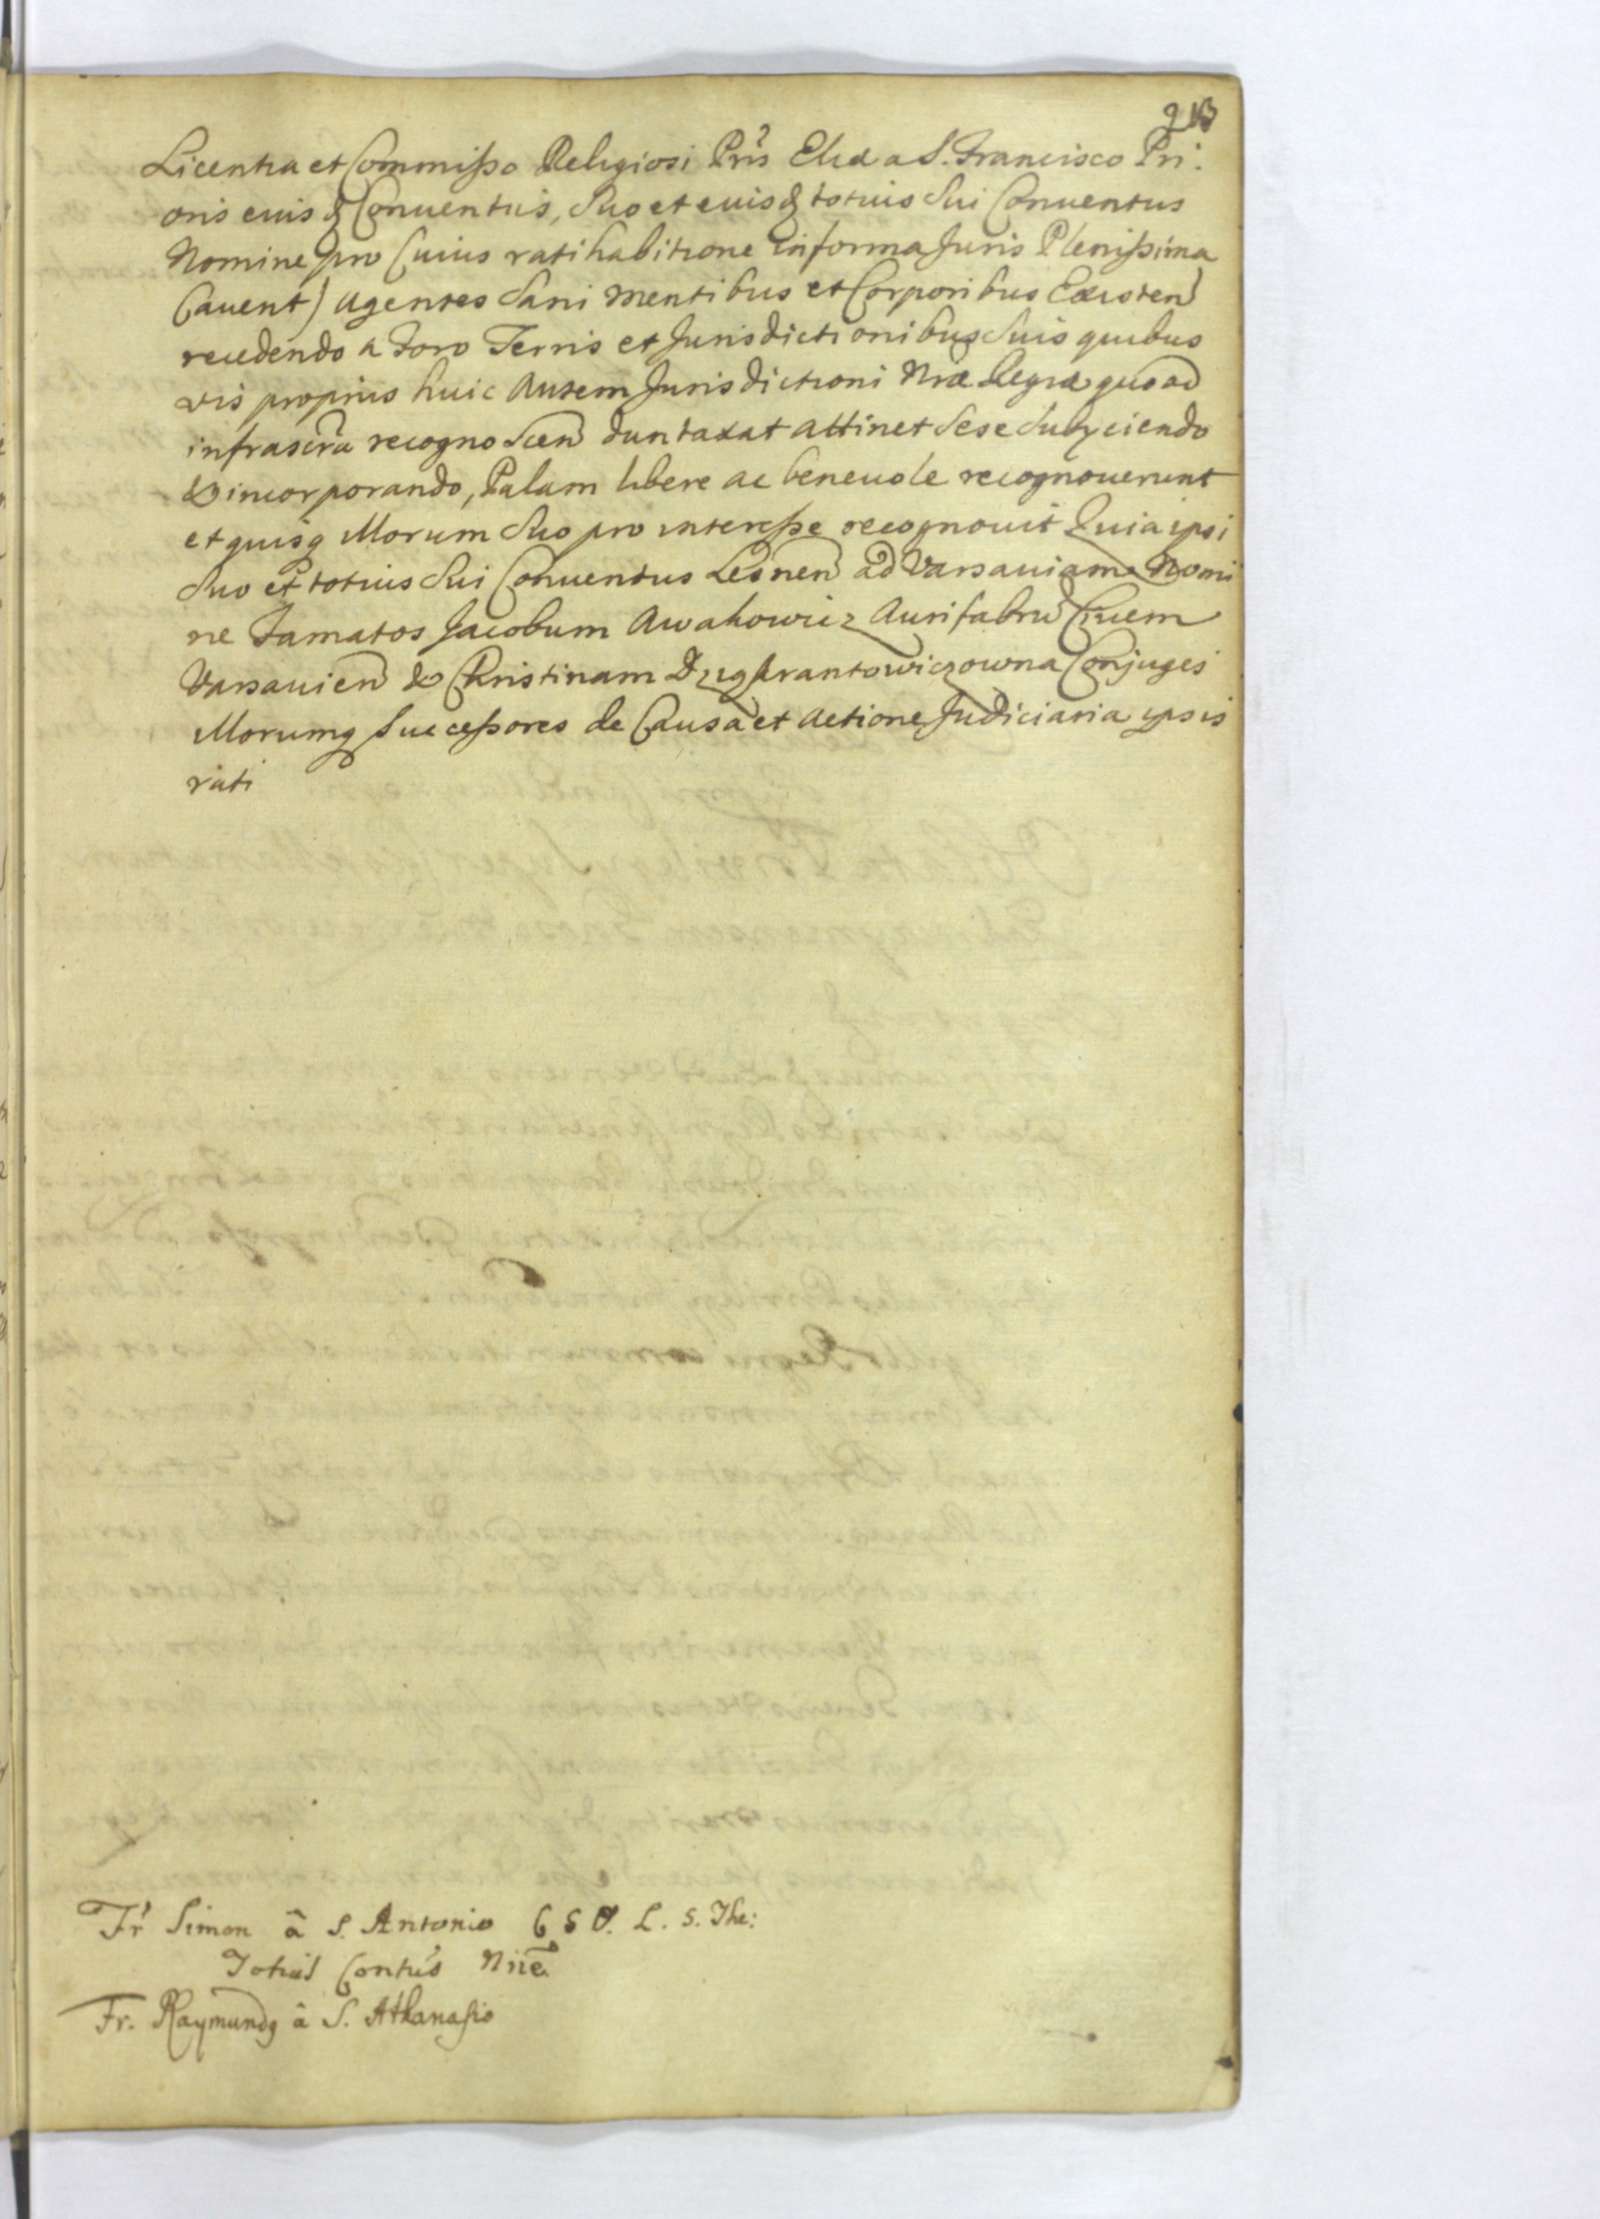 213
Licentia et Commisso Religiosi Pris Eliæ a S. Francisco Pri
oris eiusq Conuentus, Suo et eiusq totius Sui Conuentus
Nomine (pro Cuius ratihabitione in forma Juris Plenissima
Cauent) agentes Sani mentibus et Corporibus Existen
recedendo a Foro Terris et Jurisdictionibus Suis quibus
vis proprijs huic autem Jurisdictioni Nræ Regiæ quoad
infrascra recognoscen duntaxat attinet Sese Subyciendo
& incorporando, Palam libere ac beneuole recognouerunt
et quisq illorum Suo pro interesse recognouit Quia ipsi
Suo et totius Sui Conuentus Lesnen ad Varsauiam Nomi
ne Famatos Jacobum Awakowicz Aurifabru Ciuem
Varsauien & Christinam Conjuges
illorumq Successores de Causa et Actione Judiciaria ipsis
rati
Fr Simon â S. Antonio L. S. The:
Totius Contus Nne
Fr. Raymundq â S. Athanasio